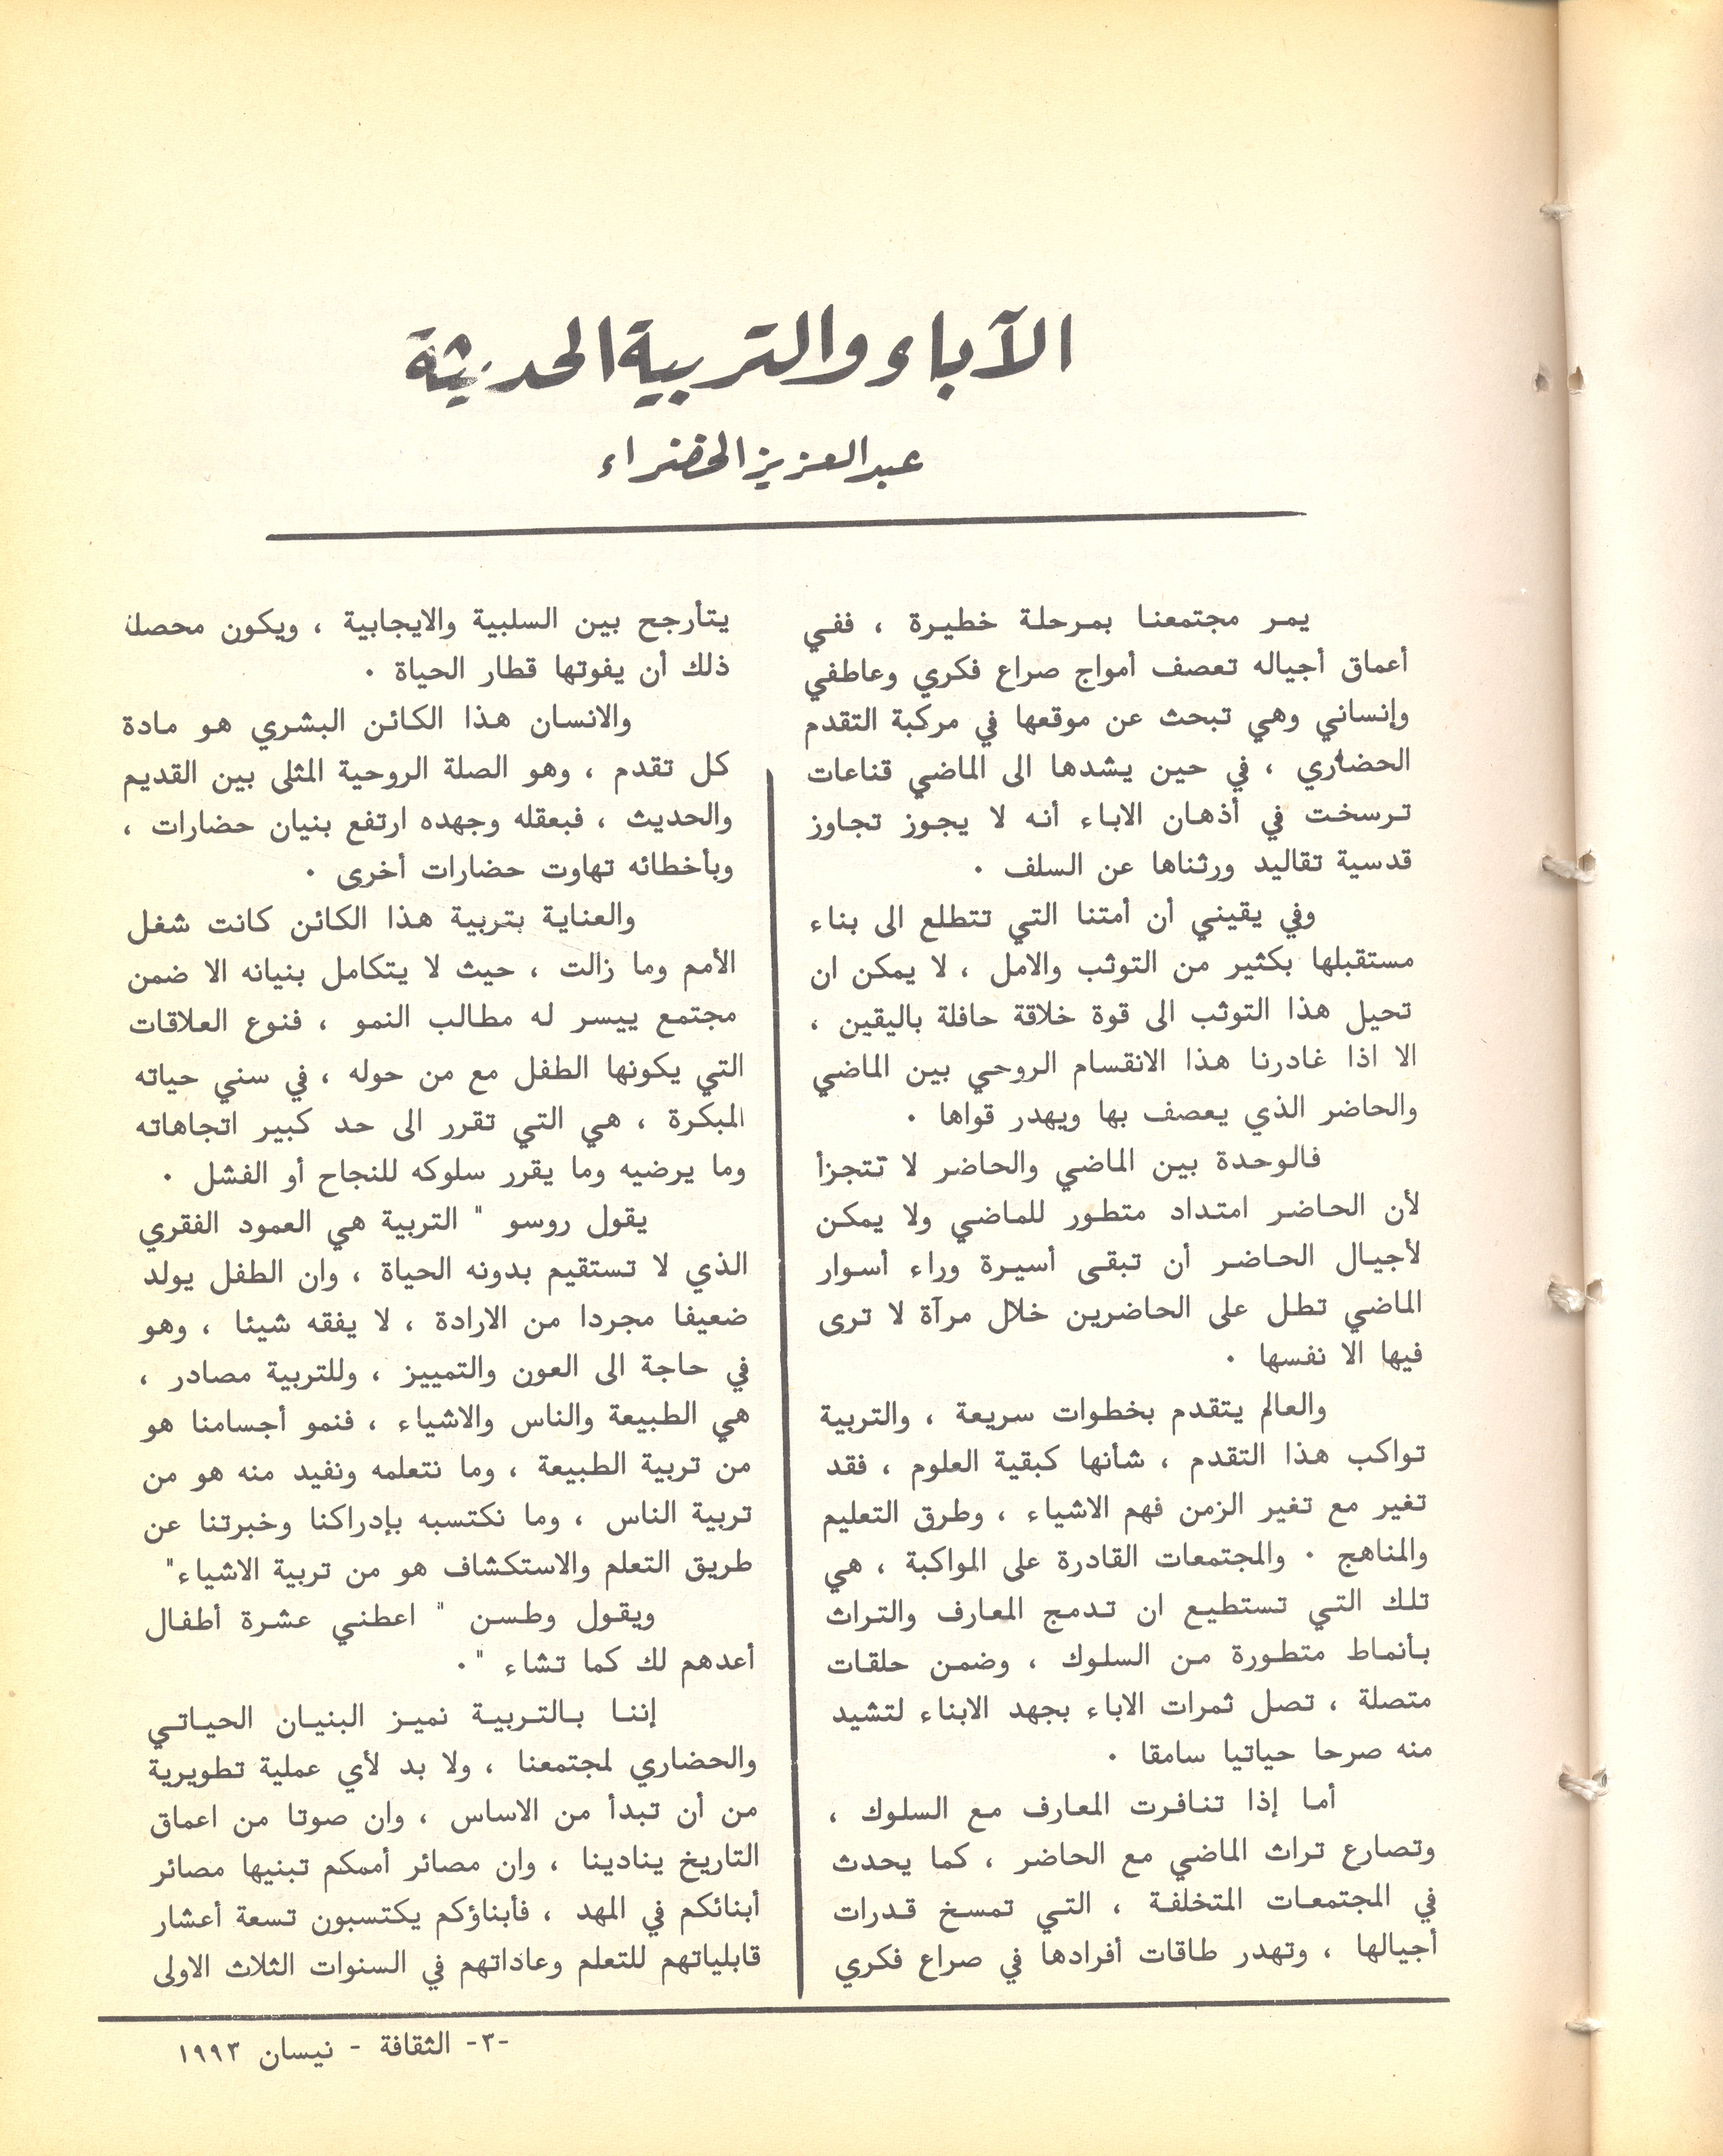 الآباء والتربية الحديثة
عبد العزيز الخضراء
يمر مجتمعنا بمرحلة خطيرة ، ففي
أعماق أجياله تعصف أمواج صراع فكري وعاطفي
وإنساني وهي تبحث عن موقعها في مركبة التقدم
الحضاري ، في حين يشدها الى الماضي قناعات
ترسخت في أذهان الاباء أنه لا يجوز تجاوز
قدسية تقاليد ورثناها عن السلف ٠
وفي يقيني أن أمتنا التي تتطلع الى بناء
مستقبلها بكثير من التوثب والامل ، لا يمكن ان
تحيل هذا التوثب الى قوة خلاقة حافلة باليقين ،
الا اذا غادرنا هذا الانقسام الروحي بين الماضي
والحاضر الذي يعصف بها ويهدر قواها ٠
فالوحدة بين الماضي والحاضر لا تتجزأ
لأن الحاضر امتداد متطور للماضي ولا يمكن
لأجيال الحاضر أن تبقى أسيرة وراء أسوار
الماضي تطل على الحاضرين خلال مرآة لا ترى
فيها الا نفسها ٠
والعالم يتقدم بخطوات سريعة ، والتربية
تواكب هذا التقدم ، شأنها كبقية العلوم ، فقد
تغير مع تغير الزمن فهم الاشياء ، وطرق التعليم
والمناهج ٠ والمجتمعات القادرة على المواكبة ، هي
تلك التي تستطيع ان تدمج المعارف والتراث
بأنماط متطورة من السلوك ، وضمن حلقات
متصلة ، تصل ثمرات الاباء بجهد الابناء لتشيد
منه صرحا حياتيا سامقا ٠
أما إذا تنافرت المعارف مع السلوك ،
وتصارع تراث الماضي مع الحاضر ، كما يحدث
في المجتمعات المتخلفة ، التي تمسخ قدرات
أجيالها ، وتهدر طاقات أفرادها في صراع فكري
يتأرجح بين السلبية والايجابية ، ويكون محصلة
ذلك أن يفوتها قطار الحياة ٠
والانسان هذا الكائن البشري هو مادة
كل تقدم ، وهو الصلة الروحية المثلى بين القديم
والحديث ، فبعقله وجهده ارتفع بنيان حضارات ،
وبأخطائه تهاوت حضارات أخرى ٠
والعناية بتربية هذا الكائن كانت شغل
الأمم وما زالت ، حيث لا يتكامل بنيانه الا ضمن
مجتمع ييسر له مطالب النمو ، فنوع العلاقات
التي يكونها الطفل مع من حوله ، في سني حياته
المبكرة ، هي التي تقرر الى حد كبير اتجاهاته
وما يرضيه وما يقرر سلوكه للنجاح أو الفشل ٠
يقول روسو " التربية هي العمود الفقري
الذي لا تستقيم بدونه الحياة ، وان الطفل يولد
ضعيفا مجردا من الارادة ، لا يفقه شيئا ، وهو
في حاجة الى العون والتمييز ، وللتربية مصادر ،
هي الطبيعة والناس والاشياء ، فنمو أجسامنا هو
من تربية الطبيعة ، وما نتعلمه ونفيد منه هو من
تربية الناس ، وما نكتسبه بإدراكنا وخبرتنا عن
طريق التعلم والاستكشاف هو من تربية الاشياء"
ويقول وطسن " اعطني عشرة أطفال
أعدهم لك كما تشاء "٠
إننا بالتربية نميز البنيان الحياتي
والحضاري لمجتمعنا ، ولا بد لأي عملية تطويرية
من أن تبدأ من الاساس ، وان صوتا من اعماق
التاريخ ينادينا ، وان مصائر أممكم تبنيها مصائر
أبنائكم في المهد ، فأبناؤكم يكتسبون تسعة أعشار
قابلياتهم للتعلم وعاداتهم في السنوات الثلاث الاولى
-٣- الثقافة - نيسان ١٩٩٣